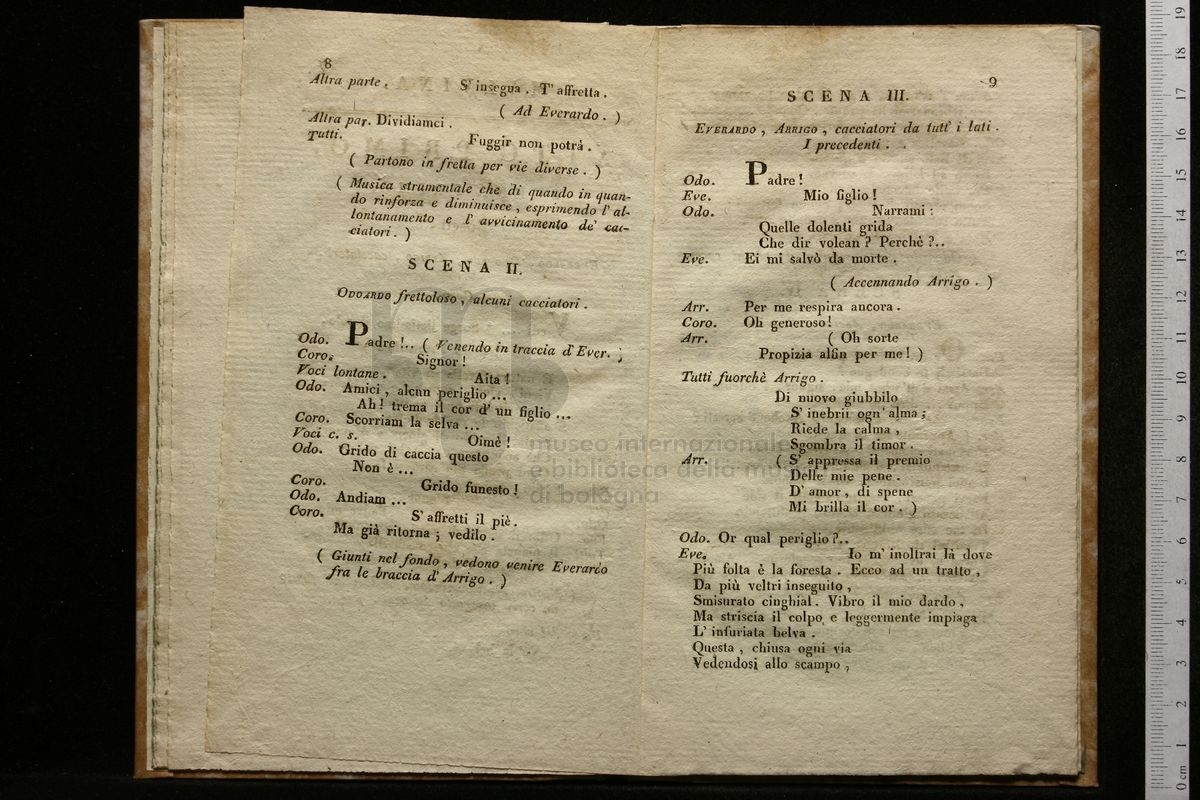 8
Altra parte. S' insegua. T' affretta.
( Ad Everardo. )
Altra par. Dividiamci.
Tutti. Fuggir non potrà.
( Partono in fretta per vie diverse. )
( Musica strumentale che di quando in quan-
do rinforza e diminuisce, esprimendo l' al-
lontanamento e l' avvicinamento de' cac-
ciatori. )
SCENA II.
ODOARDO frettoloso, alcuni cacciatori.
Odo. Padre!.. ( Venendo in traccia d' Ever. )
Coro. Signor!
Voci lontane. Aita!
Odo. Amici, alcun periglio...
Ah! trema il cor d' un figlio...
Coro. Scorriam la selva...
Voci c. s. Oimè!
Odo. Grido di caccia questo
Non è...
Coro. Grido funesto!
Odo. Andiam...
Coro. S' affretti il piè.
Ma già ritorna; vedilo.
( Giunti nel fondo, vedono venire Everardo
fra le braccia d' Arrigo. )
9
SCENA III.
EVERARDO, ARRIGO, cacciatori da tutt' i lati.
I precedenti.
Odo. Padre!
Eve. Mio figlio!
Odo. Narrami:
Quelle dolenti grida
Che dir volean? Perchè?..
Eve. Ei mi salvò da morte.
( Accennando Arrigo. )
Arr. Per me respira ancora.
Coro. Oh generoso!
Arr. ( Oh sorte
Propizia alfin per me! )
Tutti fuorchè Arrigo.
Di nuovo giubbilo
S' inebrii ogn' alma;
Riede la calma,
Sgombra il timor.
Arr. ( S' appressa il premio
Delle mie pene.
D' amor, di spene
Mi brilla il cor. )
Odo. Or qual periglio?..
Eve. Io m' inoltrai là dove
Più folta è la foresta. Ecco ad un tratto,
Da più veltri inseguito,
Smisurato cinghial. Vibro il mio dardo,
Ma striscia il colpo e leggermente impiaga
L' infuriata belva.
Questa, chiusa ogni via
Vedendosi allo scampo,
museo internazionale
e biblioteca della mus
di bologna
0 cm 1 2 3 4 5 6 7 8 9 10 11 12 13 14 15 16 17 18 19